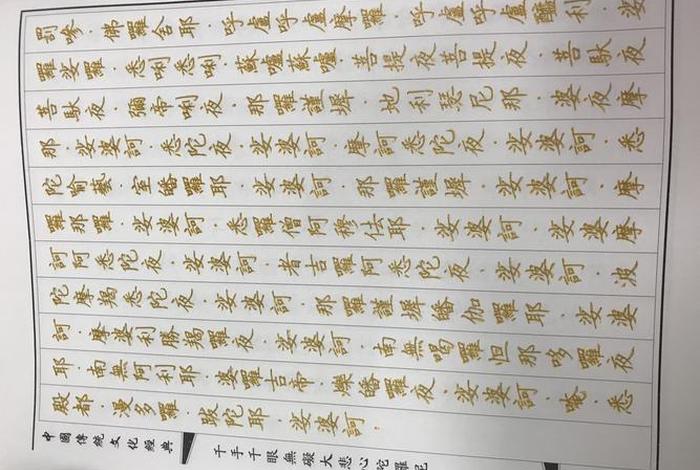 罰嘇·佛羅舍耶·呼盧呼盧摩羅·呼盧呼盧醯利·娑
羅娑羅·悉唎悉唎·蘇嚧蘇嚧·菩提夜菩提夜·菩馱夜
菩馱夜·彌帝唎夜·那羅謹墀·地利瑟尼那·婆夜摩
那·娑婆訶·悉陀夜·娑婆訶·摩訶悉陀夜·娑婆訶·悉
陀喻藝·室皤羅耶·娑婆訶·那羅謹墀·娑婆訶·摩
羅那羅·娑婆訶·悉羅僧阿穆佉耶·娑婆訶·娑婆摩
訶阿悉陀夜·娑婆訶·者吉羅阿悉陀夜·娑婆訶·波
陀摩羯悉陀夜·娑婆訶·那羅謹墀皤伽羅耶·娑婆
訶·摩婆利勝羯羅夜·娑婆訶·南無喝羅怛那哆羅夜
耶·南無阿利耶·婆羅吉帝·爍皤羅夜·娑婆訶·唵·悉
殿都·漫多羅·跋陀耶·娑婆訶·
中國傳統文化經典
千手千眼無礙大悲心陀羅尼